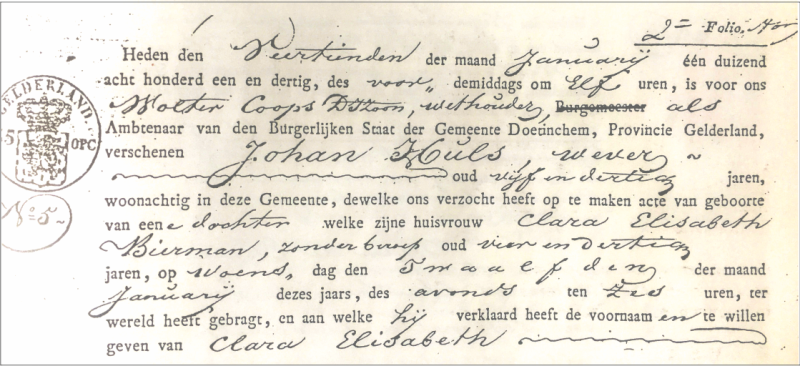 2de Folio.
Heden den Veertienden der maand Januarij één duizend
acht honderd een en dertig, des voor„ demiddags om Elf uren, is voor ons
Wolter Coops DZoon, wethouder, Burgemeester als
Ambtenaar van den Burgerlijken Staat der Gemeente Doetinchem, Provincie Gelderland,
verschenen Johan Huls, wever ~
oud vijf en dertig jaren,
woonachtig in deze Gemeente, dewelke ons verzocht heeft op te maken acte van geboorte
van eene dochter welke zijne huisvrouw Clara Elisabeth
Bierman, zonder beroep oud vier en dertig
jaren, op woens„ dag den Twaalfden der maand
Januarij dezes jaars, des avonds ten Zes uren, ter
wereld heeft gebragt, en aan welke hij verklaard heeft de voornaam en te willen
geven van Clara Elisabeth
GELDERLAND.
5 OPC
No 5 ~